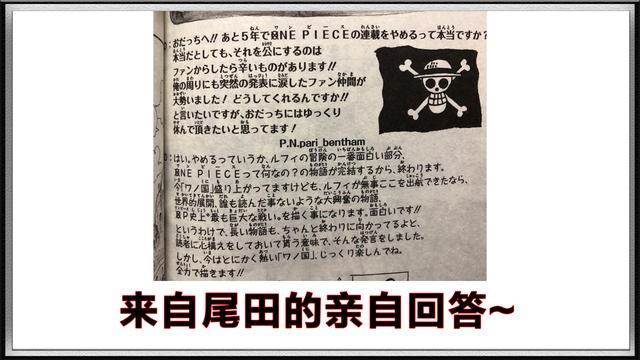 :おだっちへ!! あと5年でONE PIECEの連載をやめるって本当ですか?
本当だとしても、それを公にするのは
ファンからしたら辛いものがあります!!
俺の周りにも突然の発表に涙したファン仲間が
大勢いました! どうしてくれるんですか!!
と言いたいですが、おだっちにはゆっくり
休んで頂きたいと思ってます!
P.N.pari_bentham
:はい。やめるっていうか、ルフィの冒険の一番面白い部分、
ONE PIECEって何なの?の物語が完結するから、終わります。
今「ワノ国」盛り上がってますけども、ルフィが無事ここを出航できたなら、
世界的展開、誰も読んだ事ないような大興奮の物語、
OP史上"最も巨大な戦い。を描く事になります。面白いです!!
というわけで、長い物語も、ちゃんと終わりに向かってるよと、
読者に心構えをしておいて貰う意味で、そんな発言をしました。
しかし、今はとにかく熱い「ワノ国」、じっくり楽しんでね。
全力で描きます!!
来自尾田的亲自回答~